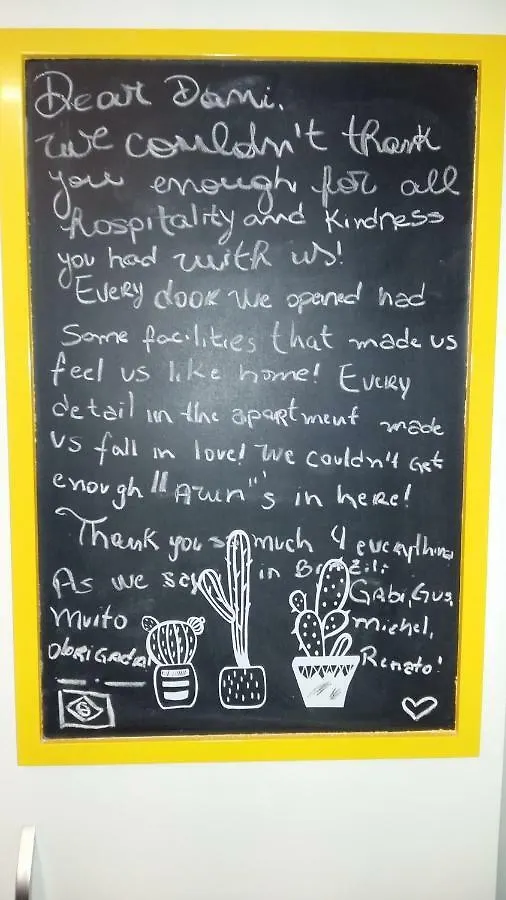 Dear Dani,
we couldn't thank
you enough for all
hospitality and kindness
you had with us!
Every door we opened had
Some facilities that made us
feel us like home! Every
detail in the apartment made
us fall in love! We couldn't get
enough "Awn"s in here!
Thank you so much 4 everything
As we say in Brazil:
Muito
Obrigada!
Gabi, Gus,
Michel,
Renato!